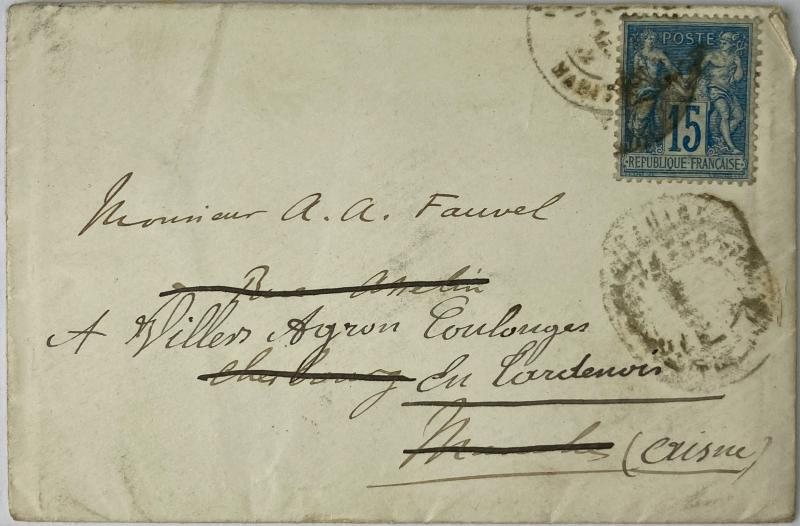 POSTE
15
REPUBLIQUE FRANÇAISE
Monsieur A. A. Fauvel
Rue Asselin
A Villers Agron Coulonges
Cherbourg En Tardenois
Manche (Aisne)